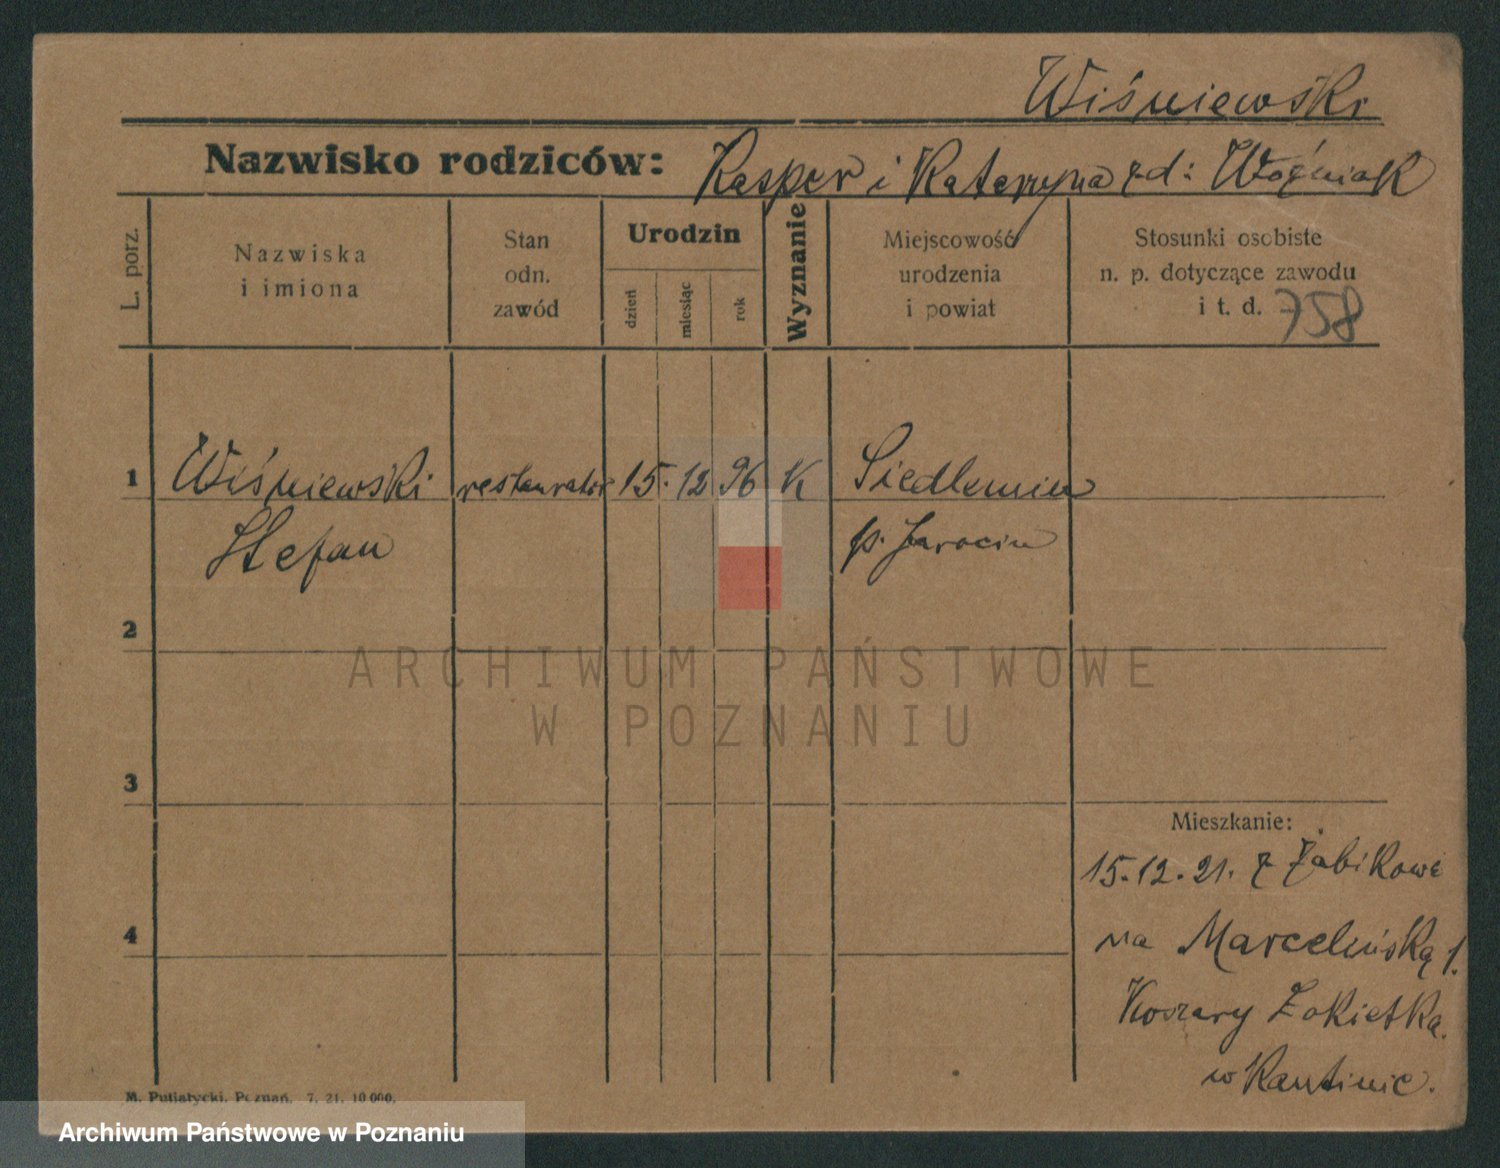 Wiśniewski
Nazwisko rodziców: Kasper i Katarzyna zd: Woźniak
L. porz.
Nazwiska
i imiona
Stan
odn.
zawód
Urodzin
dzień
miesiąc
rok
Wyznanie
Miejscowość
urodzenia
i powiat
Stosunki osobiste
n. p. dotyczące zawodu
i t. d. 758
1 Wiśniewski restaurator 15. 12 96 K Siedlemin
Stefan p. Jarocin
2
ARCHIWUM PAŃSTWOWE
W POZNANIU
3
Mieszkanie:
15.12.21. z Żabikowa
4
na Marcelińską 1.
Koszary
w Kantinie.
M. Putiatycki, Poznań. 7. 21. 10 000.
Archiwum Państwowe w Poznaniu